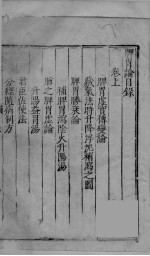 脾胃論目錄
卷上
脾胃虛實傳變論
藏氣法時升降浮沈補瀉之圖
脾胃勝衰論
補脾胃瀉陰火升陽湯
肺之脾胃虛論
升陽益胃湯
君臣佐使法
分經隨病制方